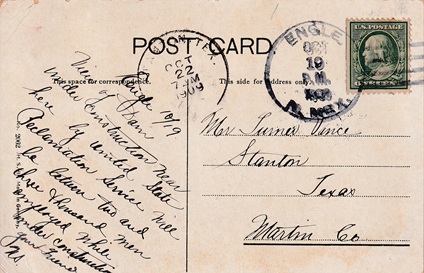 POST CARD.
This space for correspondence.
This side for address only.
TEX.
OCT
22
7 PM
1909
ENGLE
OCT
19
P.M.
N. MEX.
U.S. POSTAGE
Engle 10/19
View of Dam
under construction near
here by United State
Reclamation Service. Will
be between two and
three thousand men
employed while
under construction
Your Friend
Mr Turner Vance
Stanton
Texas
Martin Co